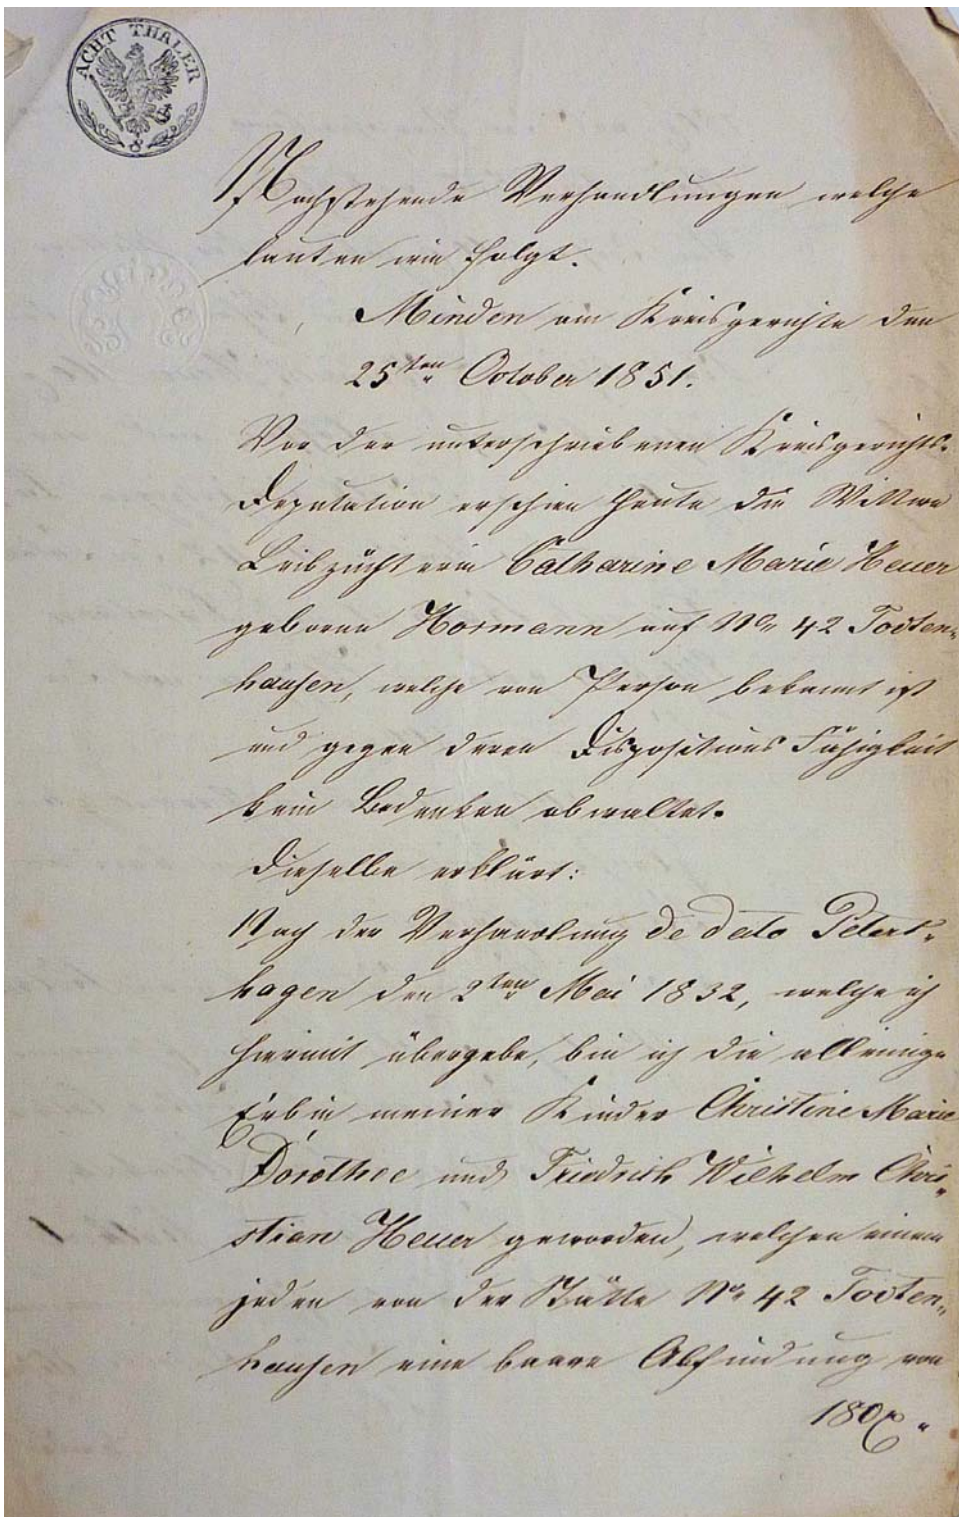 ACHT THALER
8
Nachstehende Verhandlungen welche
lauten wie folgt.
Minden am Kreisgerichte den
25ten October 1851.
Vor der unterschriebenen Kreisgerichts-
Deputation erschien heute die Wittwe
Leibzüchterin Catharine Marie Heuer
geborne Hormann auf No 42 Todten-
hausen, welche von Person bekannt ist
und gegen deren Dispositions Fähigkeit
kein Bedenken obwaltet.
Dieselbe erklärt:
Nach der Verhandlung de dato Peters-
hagen den 2ten Mai 1832, welche ich
hiermit übergebe, bin ich die alleinige
Erbin meiner Kinder Christine Marie
Dorothee und Friedrich Wilhelm Chri-
stian Heuer geworden, welchen einem
jeden von der Stätte No 42 Todten-
hausen eine baare Abfindung von
180